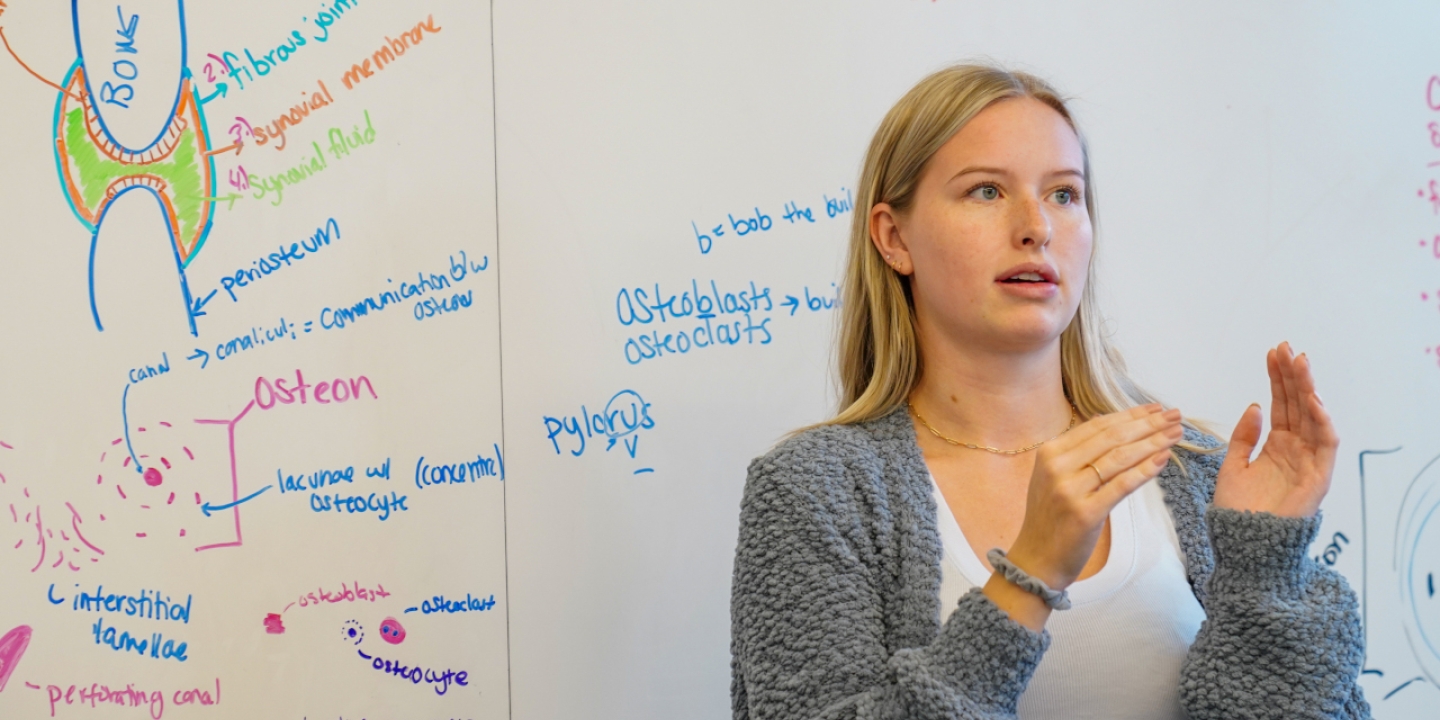 BONE
2.) fibrous joint
3.) synovial membrane
4.) synovial fluid
periosteum
canal → canaliculi = communication b/w
osteons
Osteon
lacunae w/ (concentric)
osteocyte
interstitial
lamellae
perforating canal
osteoblast
osteoclast
osteocyte
b = bob the buil
Osteoblasts → bui
osteoclasts
pylorus